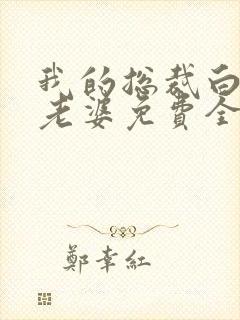 我的总裁白
老婆免費全
鄭幸紅